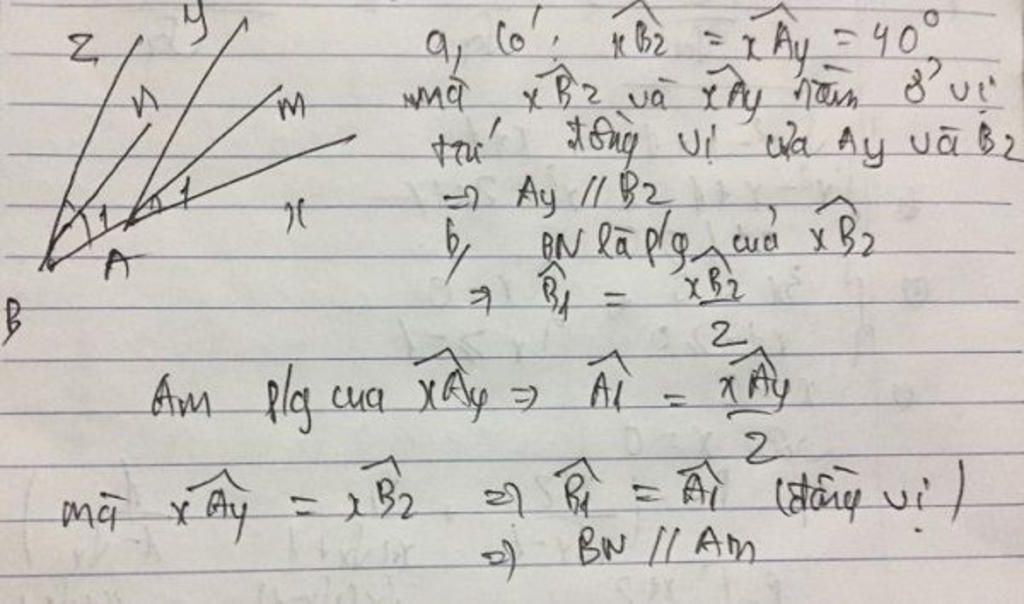 z y
n
m
1 1
x
A
B
a, Có: xB̂z = xÂy = 40°
mà xB̂z và xÂy nằm ở vị
trí đồng vị của Ay và Bz
=> Ay // Bz
b, BN là p/g của xB̂z
=> B̂1 = xB̂z / 2
Am p/g của xÂy => Â1 = xÂy / 2
mà xÂy = xB̂z => B̂1 = Â1 (đồng vị)
=> BN // Am